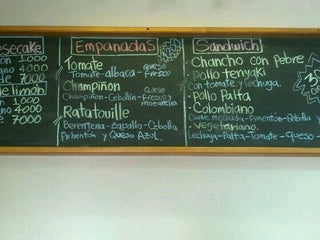 esecake
1.000
4000
7000
de limón
1.000
4000
7000
Empanadas
Tomate
Tomate-albaca- Queso Fresco
Champiñon
Champiñon-Cebollin- Queso Fresco o Mozarella
Ratatouille
Berenjena-Zapallo-Cebolla
Pimenton y Queso Azul.
Sandwich
Chancho con Pebre
Pollo teriyaki
con tomate y lechuga.
• Pollo Palta
• Colombiano
Carne Mechada-Pimentón-Cebolla y
• Vegetariano.
Lechuga-Palta-Tomate-Queso-